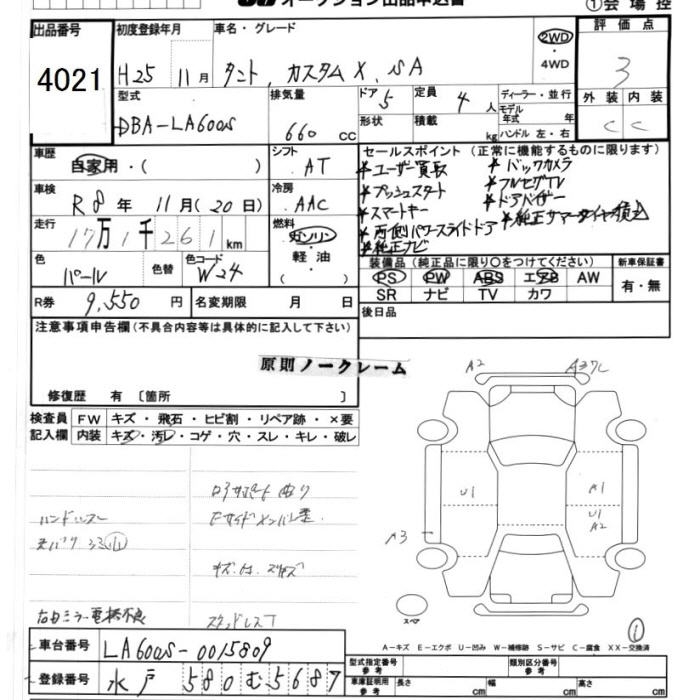 オークション出品申込書
①会場控
出品番号
4021
初度登録年月
H25 11月
車名・グレード
タント、カスタムX、SA
2WD
・
4WD
評価点
3
型式
DBA-LA600S
排気量
660 cc
ドア
5
定員
4 人
形状
積載
kg
ディーラー・並行
モデル
年式 年
ハンドル 左・右
外装 内装
C C
車歴
自家用・( )
シフト
AT
セールスポイント (正常に機能するものに限ります)
*ユーザー買取
*バックカメラ
*プッシュスタート
*フルセグTV
*スマートキー
*ドアバイザー
*両側パワースライドドア
*純正サマータイヤ積込
*純正ナビ
車検
R8年 11月(20日)
冷房
AAC
走行
17万1千261km
燃料
ガソリン
・
軽油
( )
色
パール
色替
色コード
W24
装備品(純正品に限り○をつけてください)
PS PW ABS エアB AW
SR ナビ TV カワ
新車保証書
有・無
R券
9,550円
名変期限 月 日
後日品
注意事項申告欄(不具合内容等は具体的に記入して下さい)
原則ノークレーム
修復歴 有 〔箇所 〕
検査員
記入欄
FW キズ・飛石・ヒビ割・リペア跡・×要
内装 キズ・汚レ・コゲ・穴・スレ・キレ・破レ
A2
U1
A1
U1
A2
A3
スペア
ハンドルスレ
右ミラー電格不良
①
A-キズ E-エクボ U-凹み W-補修跡 S-サビ C-腐食 XX-交換済
車台番号
LA600S-0015809
登録番号
水戸 580 む 5687
型式指定番号
参考
類別区分番号
参考
車庫証明用
参考
長さ cm
幅 cm
高さ cm